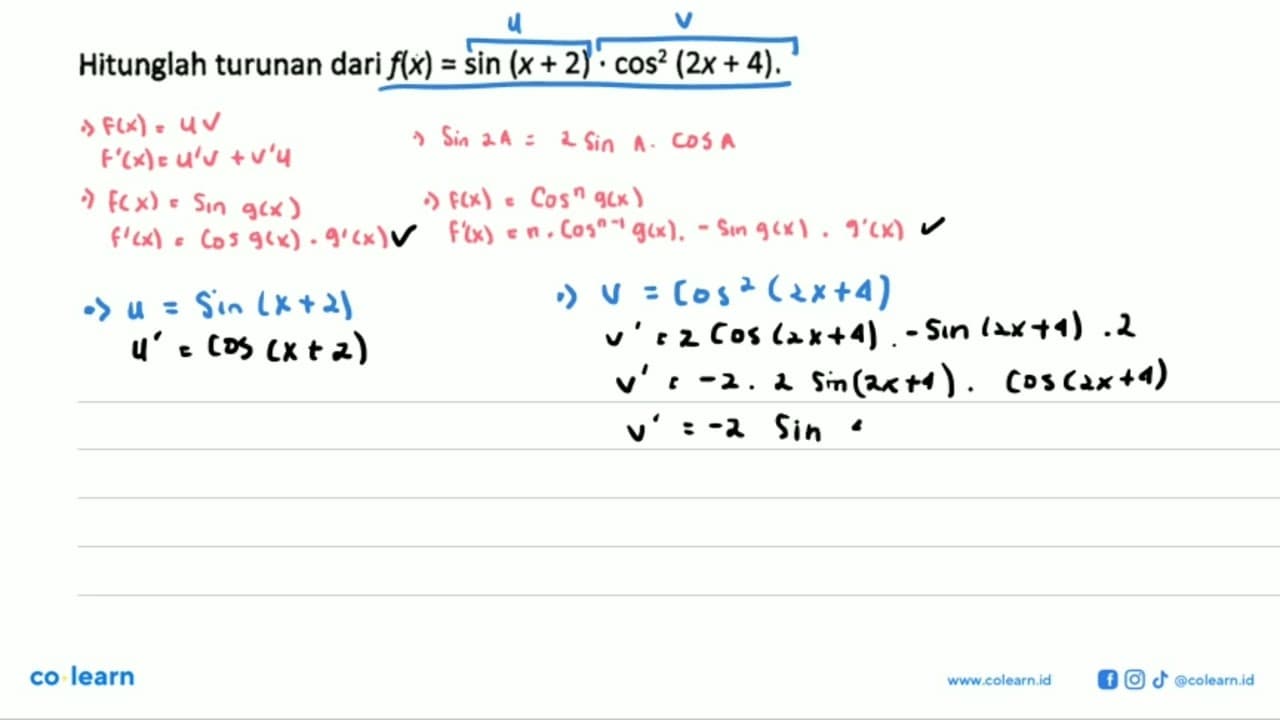 u v
Hitunglah turunan dari f(x) = sin (x + 2) · cos² (2x + 4).
⇒ F(x) = uv
F'(x) = u'v + v'u
⇒ Sin 2A = 2 Sin A. Cos A
⇒ F(x) = Sin g(x)
f'(x) = Cos g(x) . g'(x) ✓
⇒ F(x) = Cosⁿ g(x)
F'(x) = n . Cosⁿ⁻¹ g(x). - Sin g(x) . g'(x) ✓
⇒ u = Sin (x + 2)
u' = Cos (x + 2)
⇒ v = Cos² (2x + 4)
v' = 2 Cos (2x + 4) . - Sin (2x + 4) . 2
v' = -2 . 2 Sin (2x + 4) . Cos (2x + 4)
v' = -2 Sin
co·learn
www.colearn.id
@colearn.id